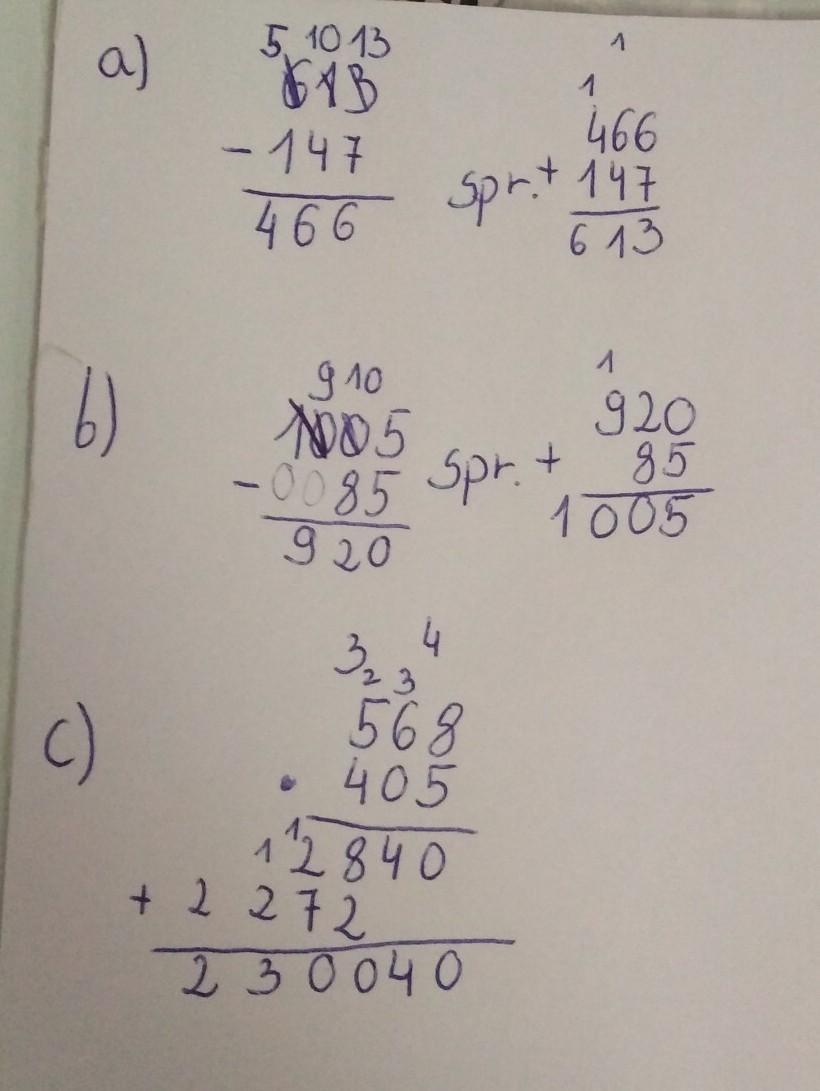 a) 5 10 13 1
613 1
466
- 147 spr. + 147
466 613
b) 9 10 1
1005 920
- 0085 spr. + 85
920 1005
3 4
2 3
c) 568
· 405
1 1
2840
+ 2272
230040